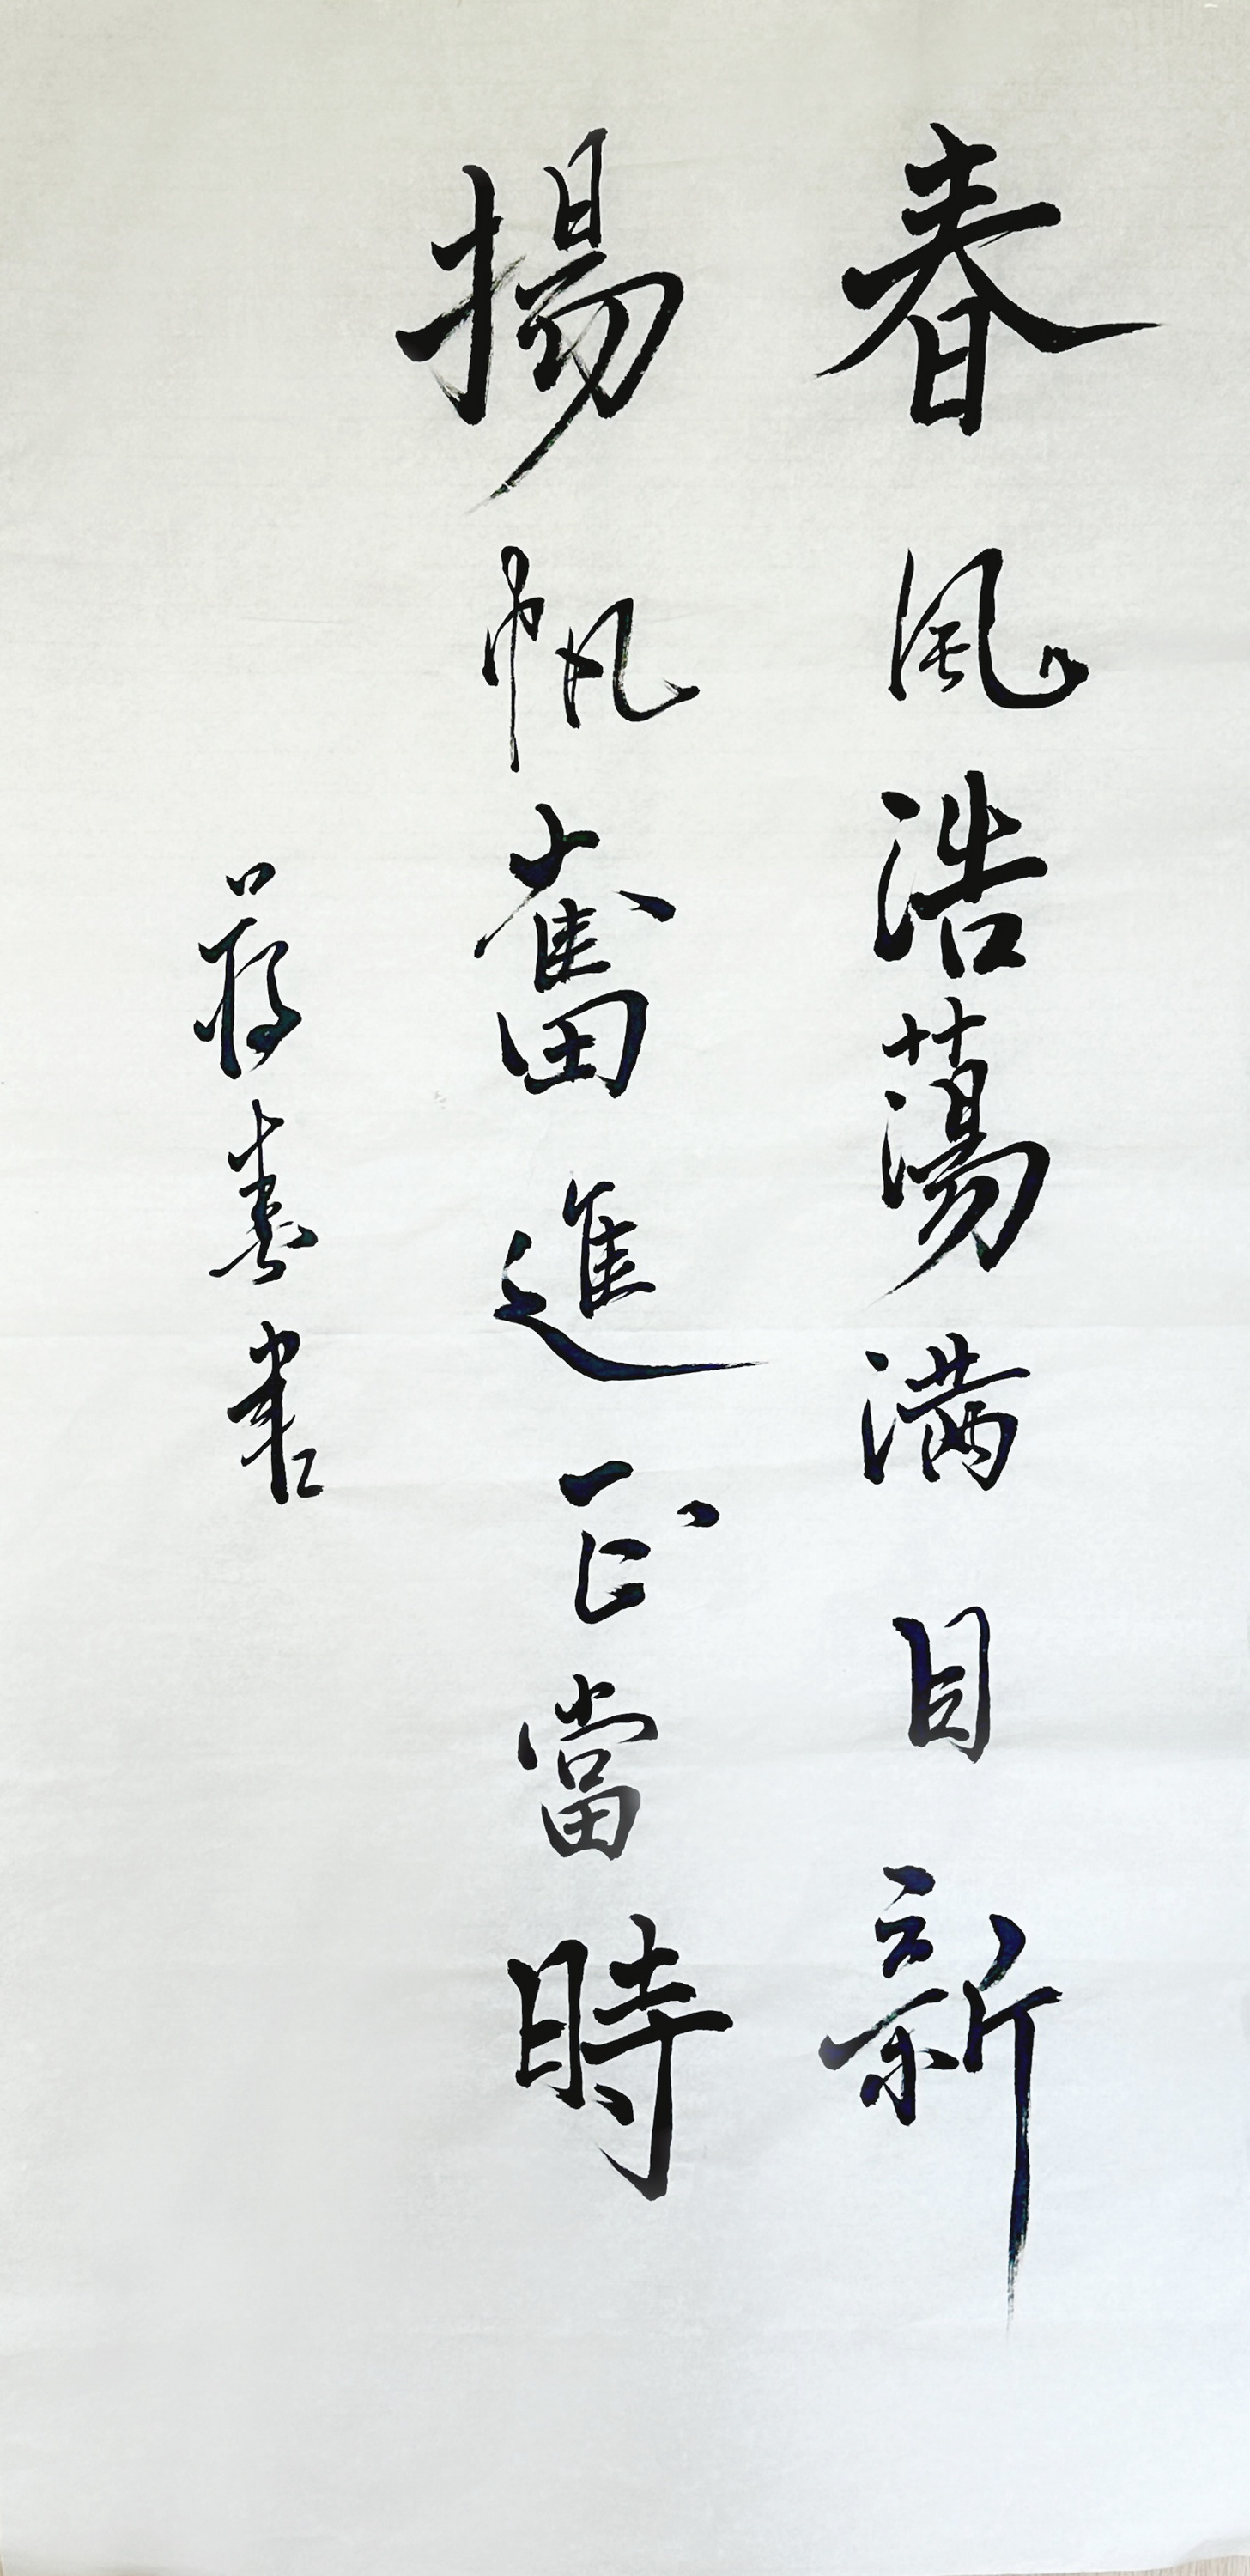 春風浩蕩满目新
揚帆奮進正當時
蔣春書